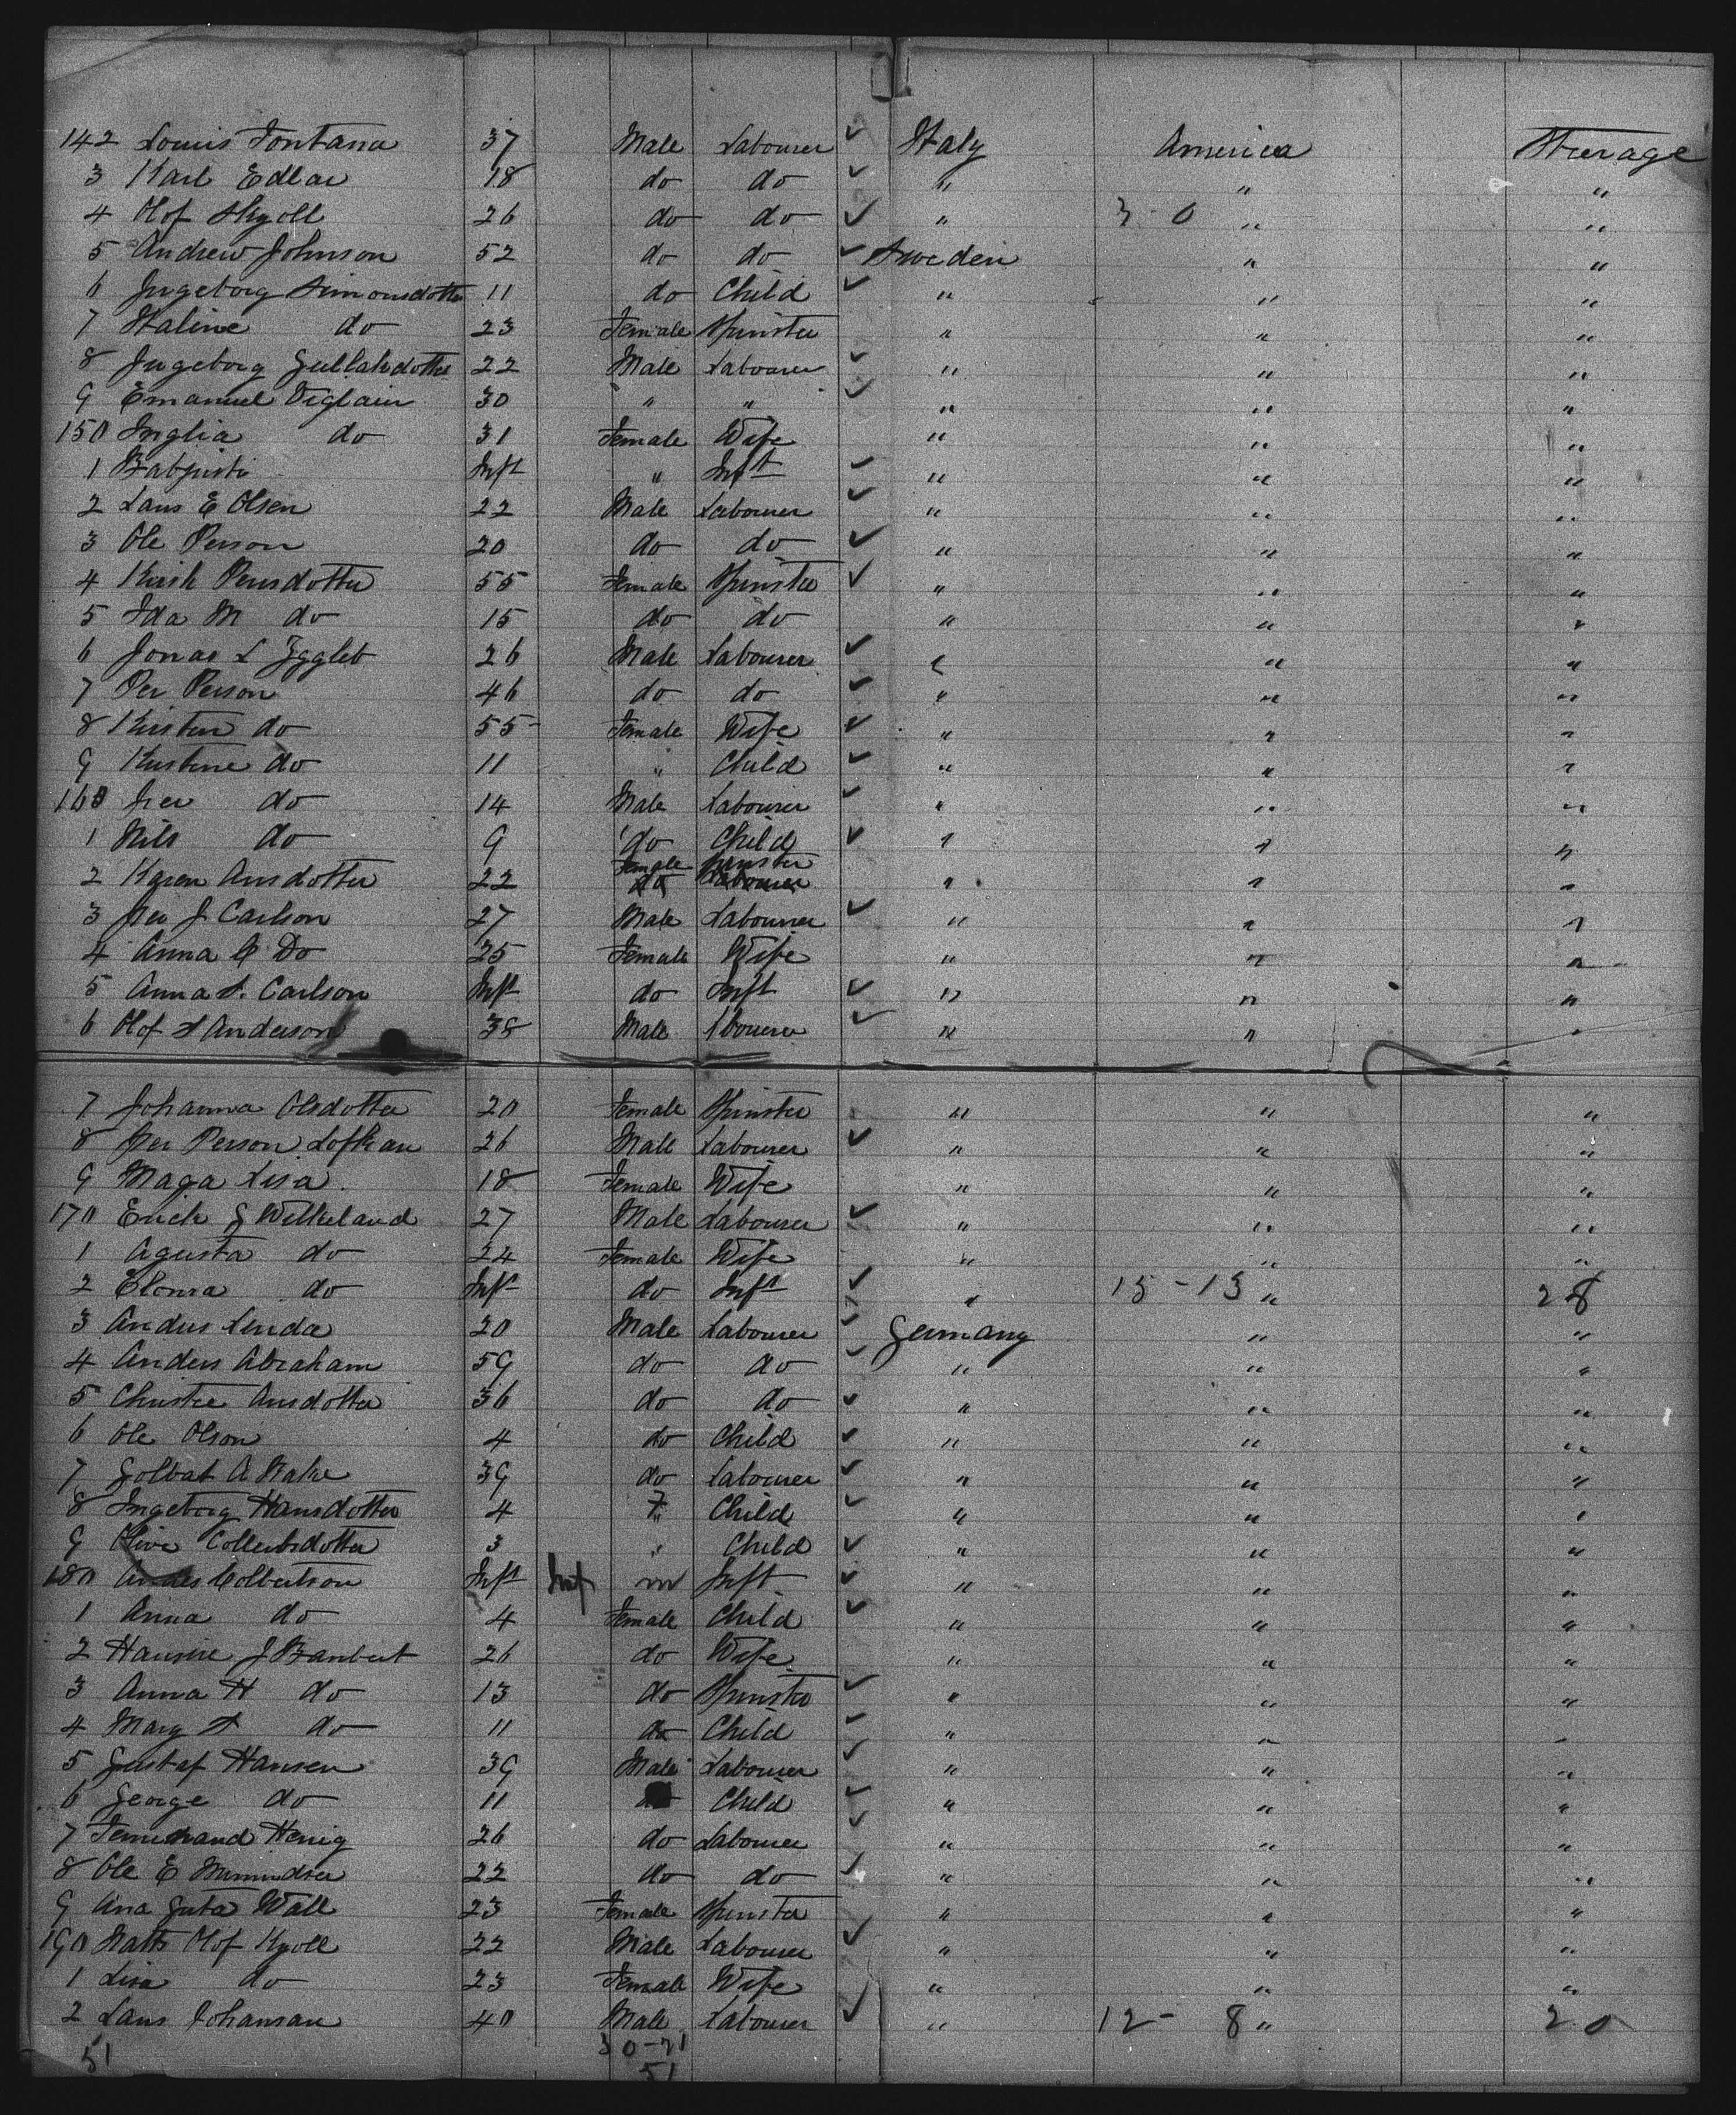 142 Louis Fontana 37 Male Labourer ✓ Italy America Steerage
3 Karl Edlar 18 do do ✓ " " "
4 Olof Skyoll 26 do do ✓ " 3 - 0 " "
5 Andrew Johnson 52 do do ✓ Sweden " "
6 Ingeborg Simonsdotter 11 do Child ✓ " " "
7 Staline do 23 Female Spinster " " "
8 Ingeborg Gullaksdotter 22 Male Labourer ✓ " " "
9 Emanuel Viglain 30 " " ✓ " "
150 Inglia do 31 Female Wife " " "
1 Inft " Inft ✓ " " "
2 Lars E Olsen 22 Male Labourer ✓ " " "
3 Ole Person 20 do do ✓ " " "
4 Persdotter 55 Female Spinster ✓ " " "
5 Ida M do 15 do do " " "
6 Jonas L 26 Male Labourer ✓ " " "
7 Per Person 46 do do ✓ " " "
8 Kirsten do 55 Female Wife ✓ " " "
9 Kirstine do 11 " Child ✓ " " "
160 Per do 14 Male Labourer ✓ " " "
1 Nils do 9 do Child ✓ " " "
Female Spinster
2 Karen Ansdotter 22 do Labourer " " "
3 Per J Carlson 27 Male Labourer ✓ " " "
4 Anna C Do 25 Female Wife " " "
5 Anna S. Carlson Inft do Inft ✓ " " "
6 Olof S Anderson 38 Male Labourer ✓ " " "
7 Johanna Olsdotter 20 Female Spinster " " "
8 Per Person Lofkan 26 Male Labourer ✓ " " "
9 Maga Lisa 18 Female Wife " " "
170 Erick G Wilkeland 27 Male Labourer ✓ " " "
1 Agusta do 24 Female Wife " " "
2 do Inft do Inft ✓ " 15 - 13 " 28
3 Anders Linda 20 Male Labourer ✓ Germany " "
4 Anders Abraham 59 do do ✓ " " "
5 Christie Ansdotter 36 do do ✓ " " "
6 Ole Olson 4 do Child ✓ " " "
7 Golbat A 39 do Labourer ✓ " " "
8 Ingeborg Hansdotter 4 F " Child ✓ " " "
9 Olive Collertsdotter 3 " Child ✓ " " "
180 Anders Colbertson Inft Inf m Inft ✓ " " "
1 Anna do 4 Female Child ✓ " " "
2 Hansine J Banbert 26 do Wife " " "
3 Anna H do 13 do Spinster ✓ " " "
4 Mary S do 11 do Child ✓ " " "
5 Gustaf Hansen 39 Male Labourer ✓ " " "
6 George do 11 do Child ✓ " " "
7 Henig 26 do Labourer ✓ " " "
8 Ole E 22 do do ✓ " " "
9 Ana Guta Wall 23 Female Spinster " " "
190 Matts Olof Kyoll 22 Male Labourer ✓ " " "
1 Lisa do 23 Female Wife " " "
2 Lars Johansan 40 Male Labourer ✓ " 12 - 8 " 20
51 30-21
51